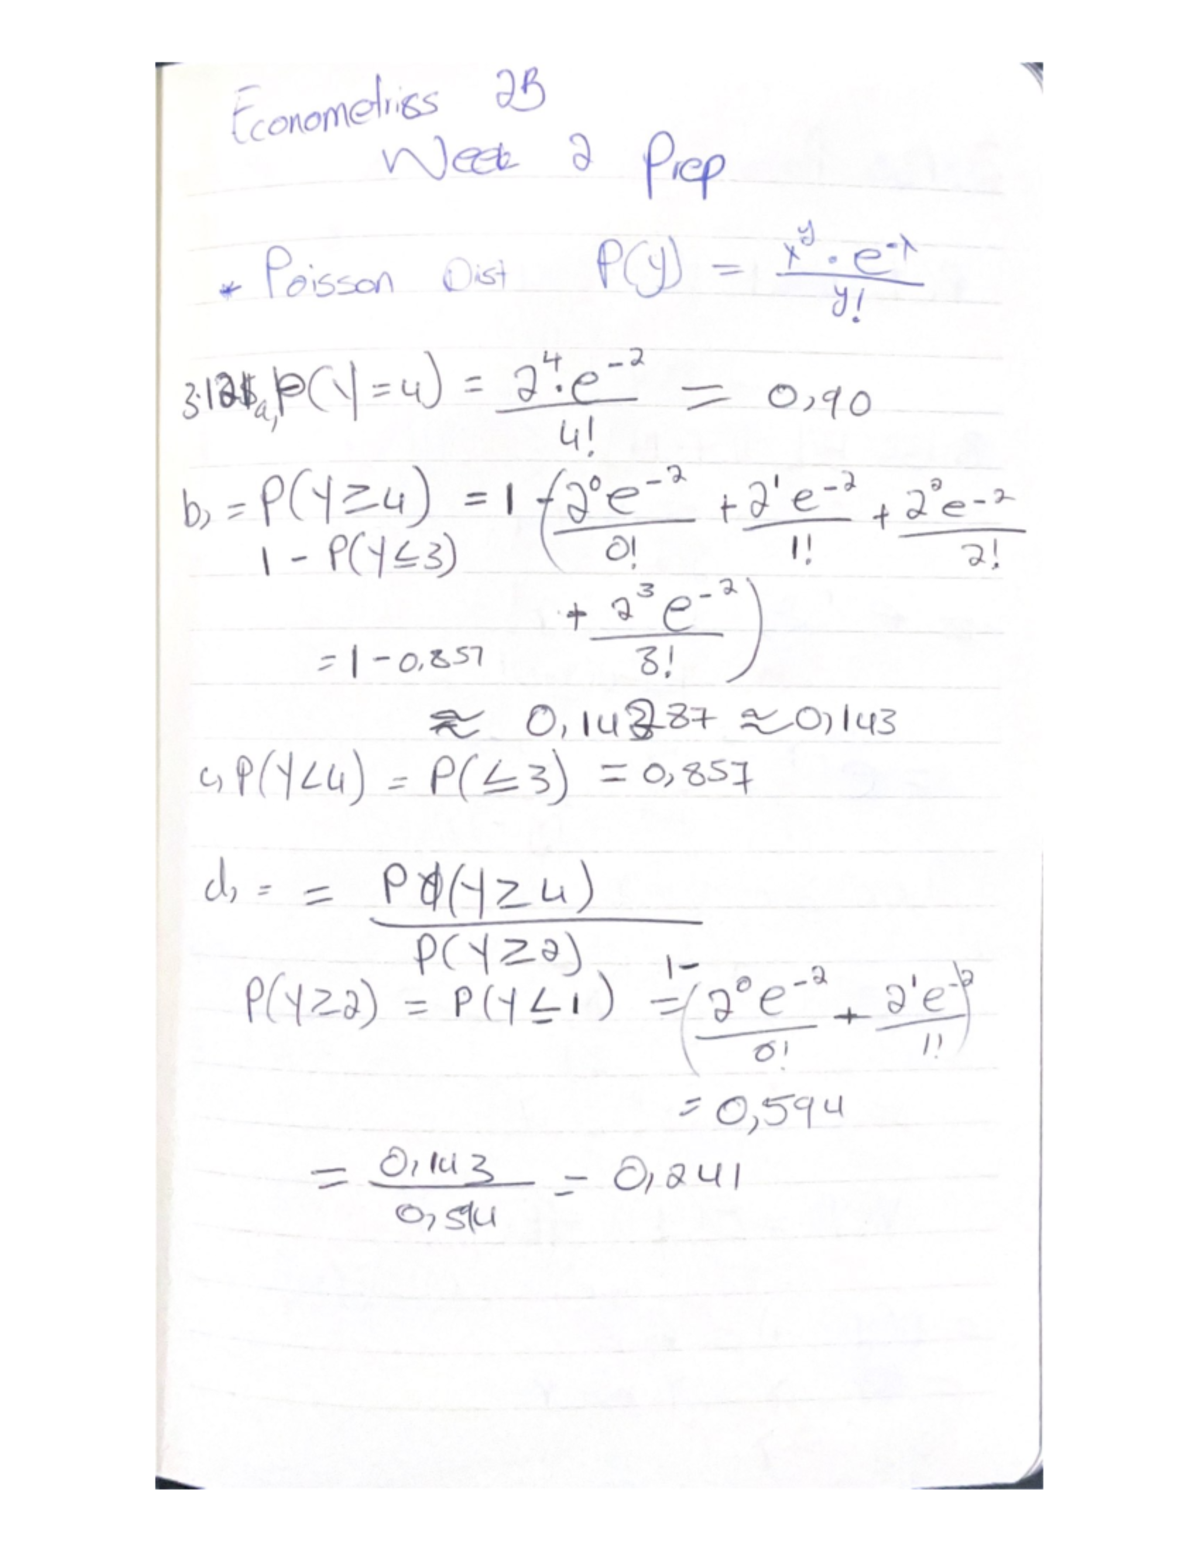 Econometriss 2B
Week 2 Prep
* Poisson Dist P(y) = λ^y · e^-λ / y!
a, P(Y=4) = 2^4 · e^-2 / 4! = 0,90
b, = P(Y≥4) = 1 - (2^0 e^-2 / 0! + 2^1 e^-2 / 1! + 2^2 e^-2 / 2!
1 - P(Y≤3)
+ 2^3 e^-2 / 3!)
= 1 - 0,857
≈ 0,14287 ≈ 0,143
c, P(Y<4) = P(≤3) = 0,857
d, = = P(Y≥4) / P(Y≥2)
P(Y≥2) = P(Y≤1) = 1 - (2^0 e^-2 / 0! + 2^1 e^-2 / 1!)
= 0,594
= 0,143 / 0,594 = 0,241